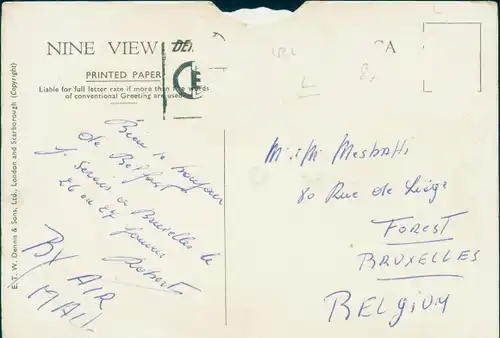 NINE VIEW
PRINTED PAPER
Liable for full letter rate if more than five words
of conventional Greeting are used.
E. T. W. Dennis & Sons, Ltd., London and Scarborough (Copyright)
Bien le bonjour
de Belfast
Je serais a Bruxelles le
26 ou 27
Robert
BY AIR
MAIL
80 Rue de Liège
FOREST
BRUXELLES
BELGIUM